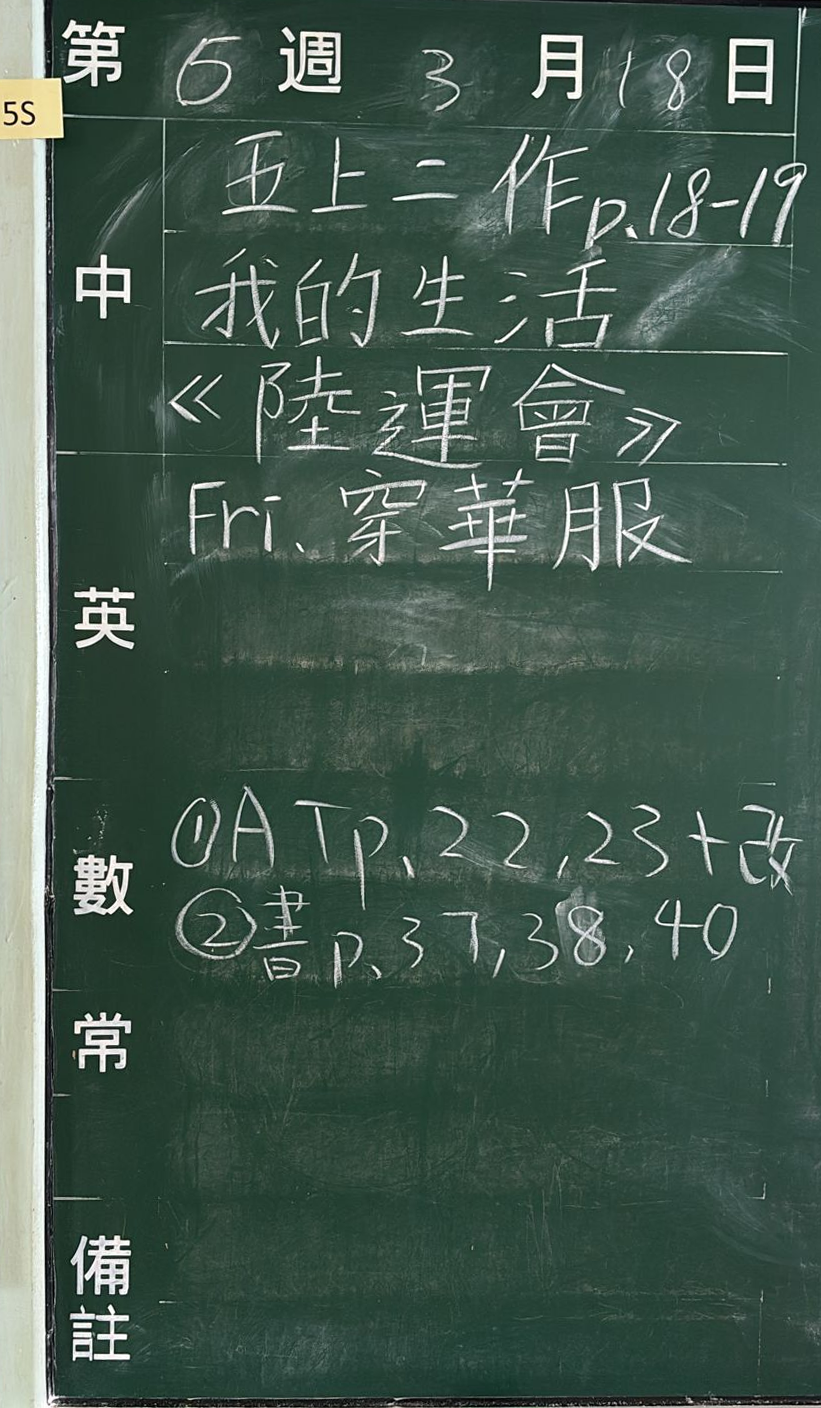 第 5 週 3 月 18 日
5S
中
五上二 作 p.18-19
我的生活
《陸運會》
英
Fri. 穿華服
數
①A T p.22,23+改
②書 p.37,38,40
常
備註